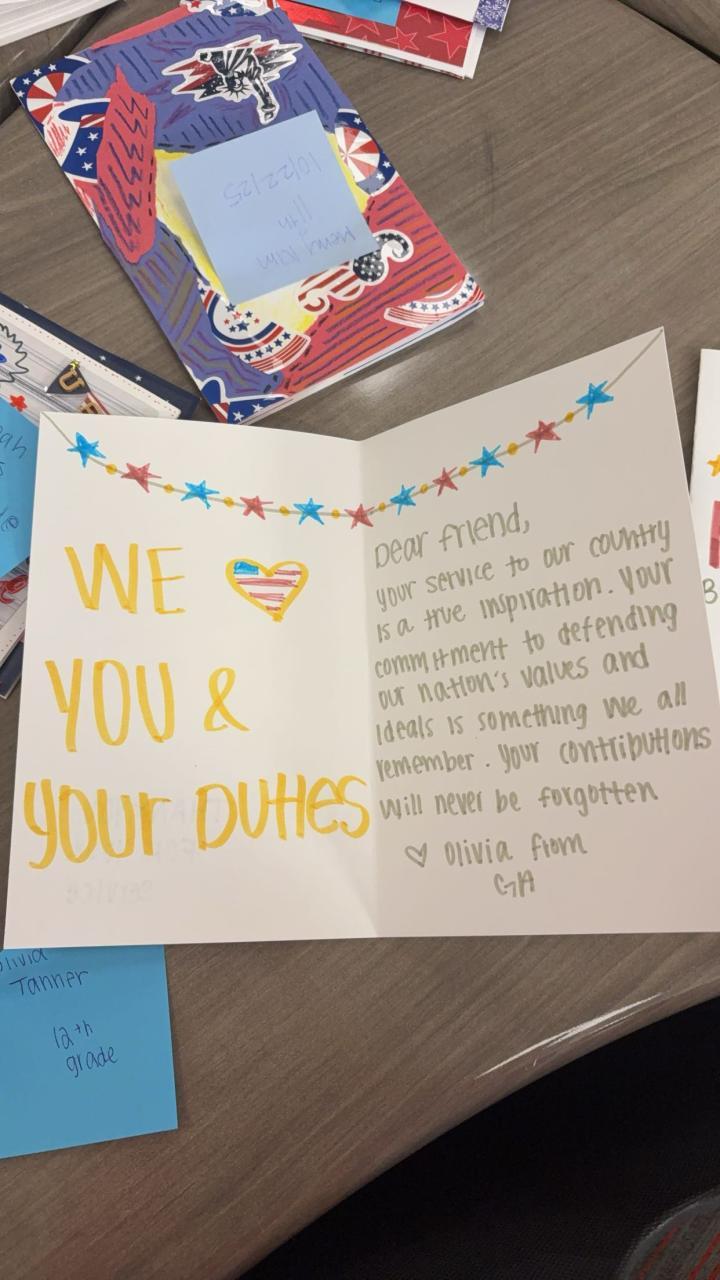 10/22/25
11th
WE
YOU &
your DUtIes
Dear friend,
your service to our country
is a true inspiration. Your
commitment to defending
our nation's values and
Ideals is something we all
remember. your contributions
will never be forgotten
♡ Olivia from
GA
Olivia
Tanner
12th
grade